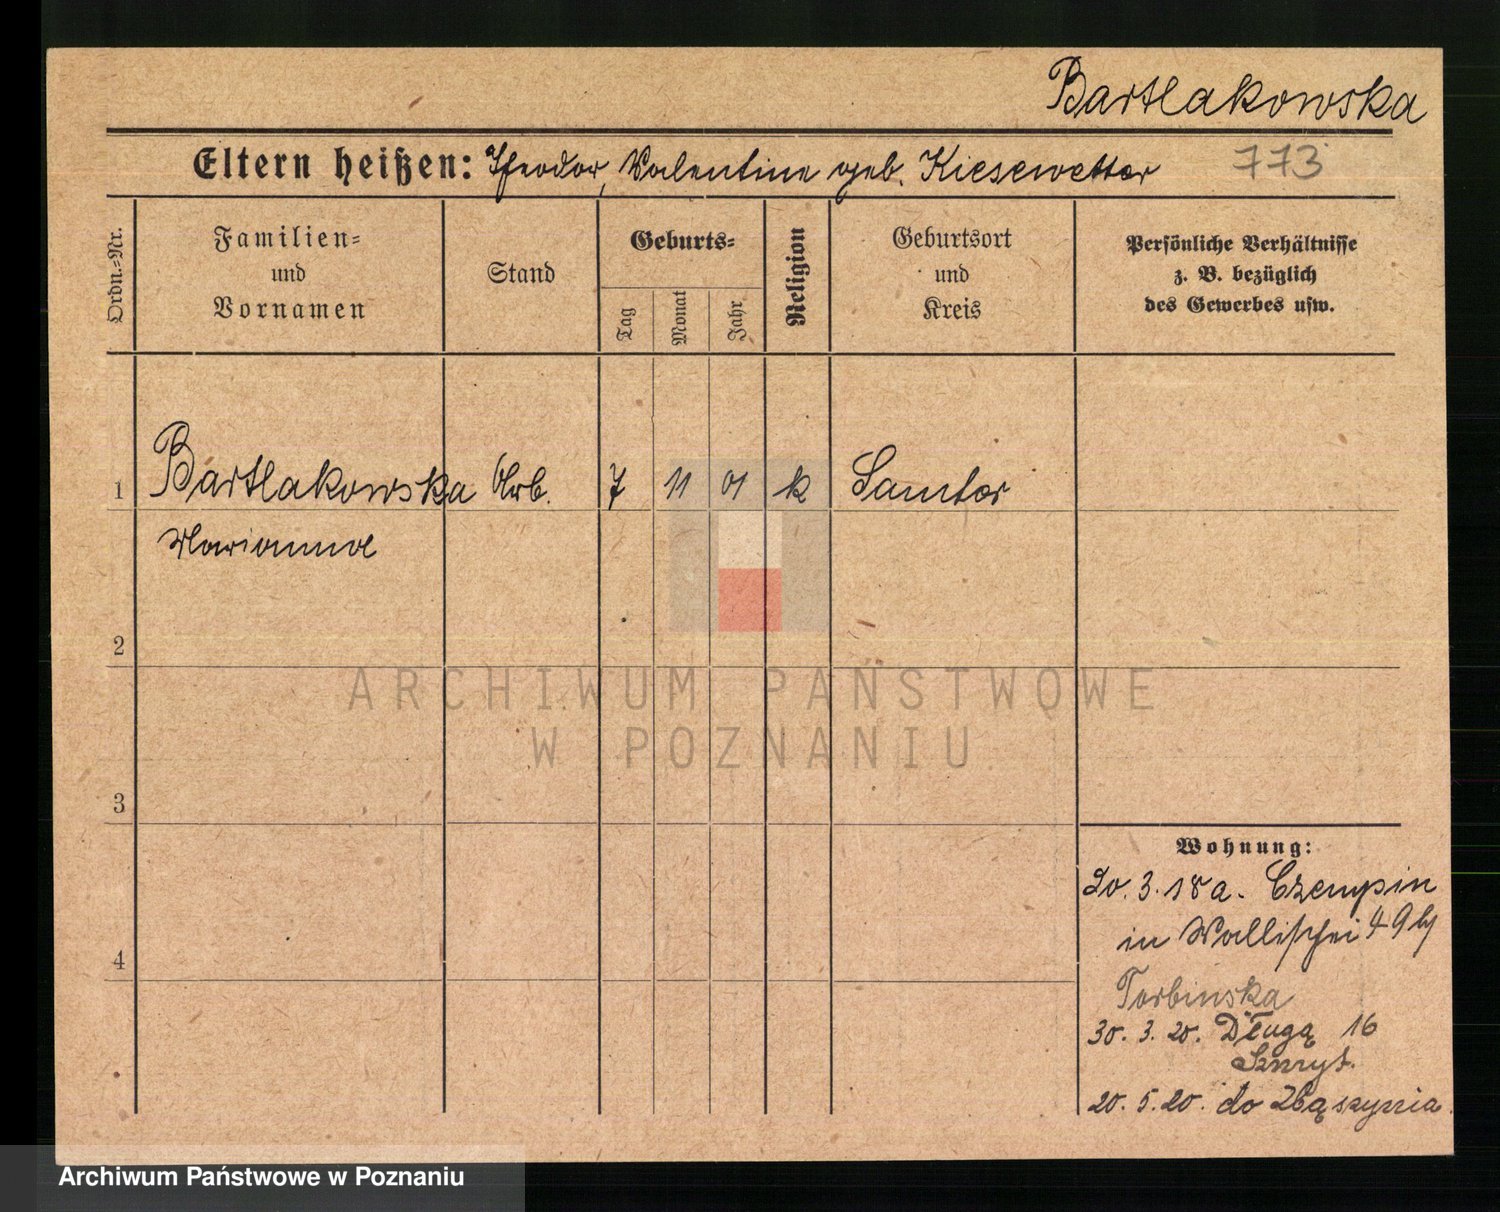 Bartlakowska
Eltern heißen: Theodor, Valentine geb. Kiesewetter 773
Ordn.-Nr.
Familien- und Vornamen
Stand
Geburts-
Tag
Monat
Jahr
Religion
Geburtsort und Kreis
Persönliche Verhältnisse z. B. bezüglich des Gewerbes usw.
1 Bartlakowska Arb. 7 11 01 k Samter
Marianna
2
3
4
Wohnung:
20. 3. 18 a. Czempin
in Wallischei 49
Torbinska
30. 3. 20. Długa 16
Szmyt.
20. 5. 20. do Zbąszynia
ARCHIWUM PAŃSTWOWE
W POZNANIU
Archiwum Państwowe w Poznaniu